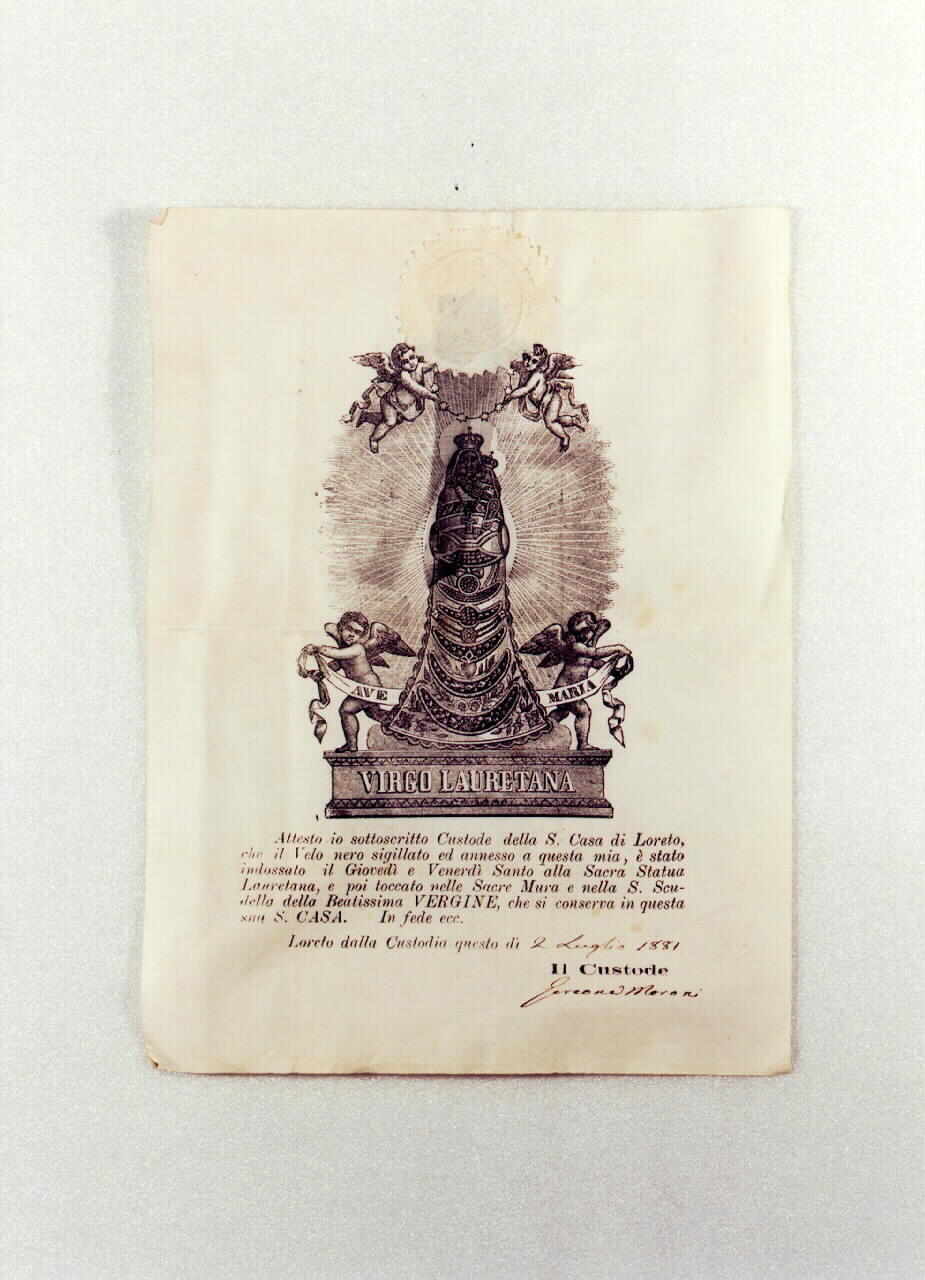 AVE MARIA
VIRGO LAURETANA
Attesto io sottoscritto Custode della S. Casa di Loreto,
che il Velo nero sigillato ed annesso a questa mia, è stato
indossato il Giovedì e Venerdì Santo alla Sacra Statua
Lauretana, e poi toccato nelle Sacre Mura e nella S. Scu-
della della Beatissima VERGINE, che si conserva in questa
sua S. CASA. In fede ecc.
Loreto dalla Custodia questo dì 2 Luglio 1881
Il Custode
Moroni